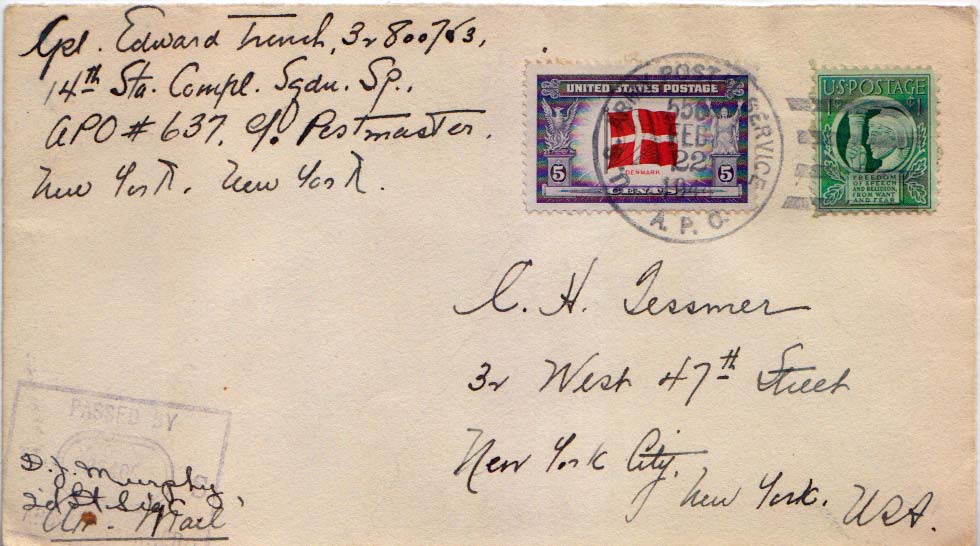 Cpl. Edward Trench, 32800763,
14th Sta. Compl. Sqdn. Sp.,
APO # 637, c/o Postmaster.
New York, New York.
UNITED STATES POSTAGE
5 5
DENMARK
U.S. ARMY POSTAL SERVICE
556
FEB
22
A. P. O.
U.S. POSTAGE
1¢ 1¢
FREEDOM
OF SPEECH
AND RELIGION,
FROM WANT
AND FEAR
C. H. Tessmer
32 West 47th Street
New York City,
New York. USA.
PASSED BY
D. J. Murphy
2d Lt
Air Mail